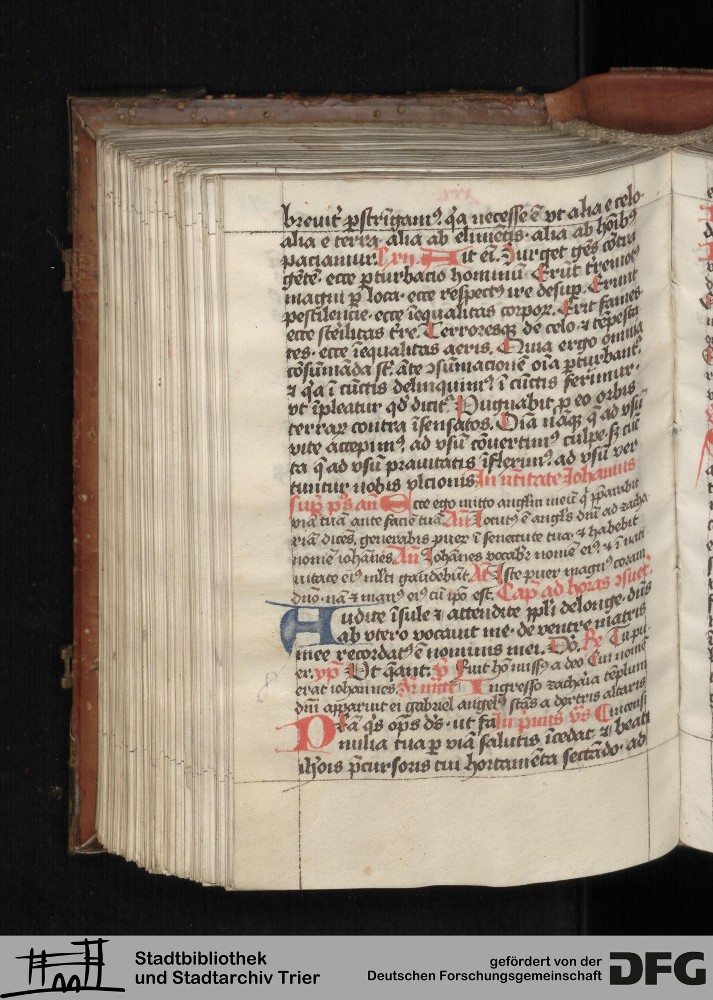 breuit̄ p̲stri̅gam⁹. q̇a necesse ē vt alia e celo.
alia e terra. alia ab elimētis. alia ab hōib⁹
paciamur. lxii. Ait ei̅. Surget ge̅s co̅tra
ge̅te̅. ecce p̲turbacio hominu̅. Eru̅t t̄remot⁹
magni p̲ loca. ecce respect⁹ ire desup̲. Erunt
pestilencie. ecce i̅equalitas corpoꝝ. Erit fames
ecce sterilitas t̄re. Terroresq̲ de celo. ⁊ te̅pesta
tes. ecce i̅equalitas aeris. Quia ergo o̅mia
co̅su̅ma̅da su̅t. a̅te ꝯsu̅macione̅ oi̅a p̲turbant͛.
⁊ q̇a i̅ cu̅ctis delinquim⁹. i̅ cu̅ctis ferimur.
vt i̅pleatur qd̕ dicit͛. Pugnabit p̲ eo orbis
terraꝝ contra i̅sensatos. Oi̅a na̅q̲ q̄ ad vsu̅
vite accepim⁹. ad vsu̅ co̅uertim⁹ culpe. sꝫ cu̅c
ta q̄ ad vsu̅ prauitatis i̅flexim⁹. ad vsu̅ ver
tuntur nobis vlcionis. In nt̄itate Iohannis
sup̲ p̄s an̅ Ecce ego mitto angl̅m meu̅ q̇ p̄parabit
via̅ tua̅ ante facie̅ tua̅. An̅ Locut⁹ e̅ angl̅s dn̅i ad zacha
ria̅ dice̅s. generabis puer i̅ senectute tua. ⁊ habebit
nome̅ ioha̅nes. An̅ Ioha̅nes vocabit͛ nome̅ ei⁹. ⁊ i̅ nati
uitate ei⁹ ml̅ti gaudebu̅t. An̅ Iste puer magn⁹ coram
dn̅o. na̅ ⁊ man⁹ ei⁹ cu̅ ip̅o est. Cap̅ ad horas ꝯsuet.
Audite i̅sule ⁊ attendite pp̅li de longe. dn̅s
ab vtero vocauit me. de ventre matris
mee recordat⁹ e̅ nominis mei. Do̅. R̷ Tu pu
er. yp̅ Ut q̄ant. v̅ Fuit ho̅ miss⁹ a deo Cui nome̅
erat iohannes. In mīt Ingresso zacharia te̅plum
dn̅i apparuit ei gabriel angel⁹ sta̅s a dextris altaris
Pr̄a q̄s op̅s d̅s. ut fa In p̄mis vs̅ Cu incensi
milia tua p̲ via̅ salutis i̅cedat. ⁊ beati
ioh̅is p̄cursoris tui hortame̅ta secta̅do. ad
Stadtbibliothek
und Stadtarchiv Trier
gefördert von der
Deutschen Forschungsgemeinschaft DFG